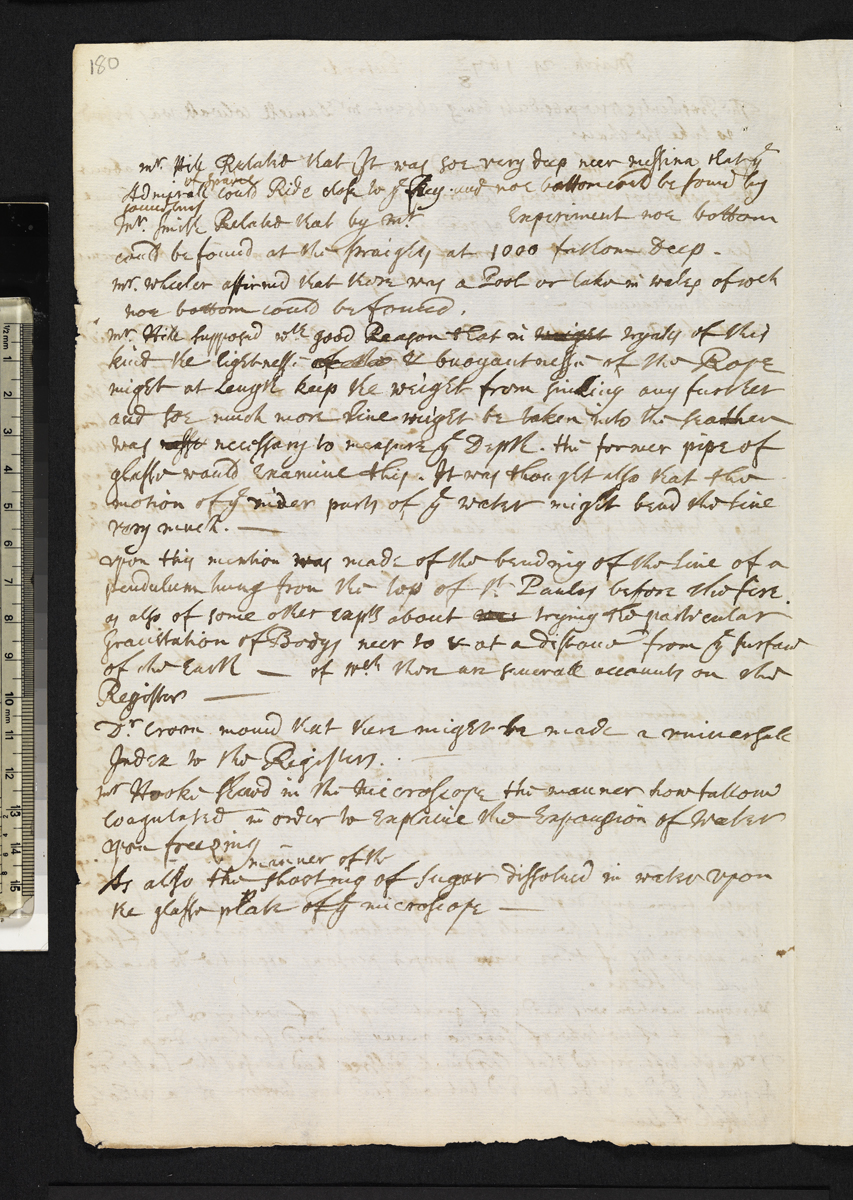 180
mr. Hill Related that It was soe very deep neer messina that ye
Admyrall of France could Ride close to ye Key. and noe bottom could be found by
sounding
mr. Smith Related that by mr. Experiment noe bottom
could be found at the straights at 1000 fathom Deep -
mr. wheeler affirmd that there was a Pool or lake in wales of wch
noe bottom could be found.
mr. Hill supposed wth good Reason that in weight tryalls of this
kind the lightnesse of the & buoyantnesse of the Rope
might at Length keep the weight from sinking any further
and soe much more Line might be taken into the sea then
was nesse necessary to measure ye Depth. the former pipe of
glasse would Examine this. It was thought also that the
motion of ye vnder parts of ye water might bend the Line
very much. —
vpon this mention was made of the bending of the Line of a
pendulum hung from the top of St. Pauls before the fire.
as also of some other expts about trying the particular
Gravitation of Bodys neer to & at a distance from ye surface
of the Earth — of wch there are severall accounts on the
Register —
Dr. croon moved that there might be made a vniversall
Index to the Registers.
mr Hooke shewd in the microscope the manner how tallow
coagulated in order to Explaine the Expansion of water
vpon freezing
As also the manner of the shooting of sugar dissolved in water vpon
the glasse plate of ye microscope —